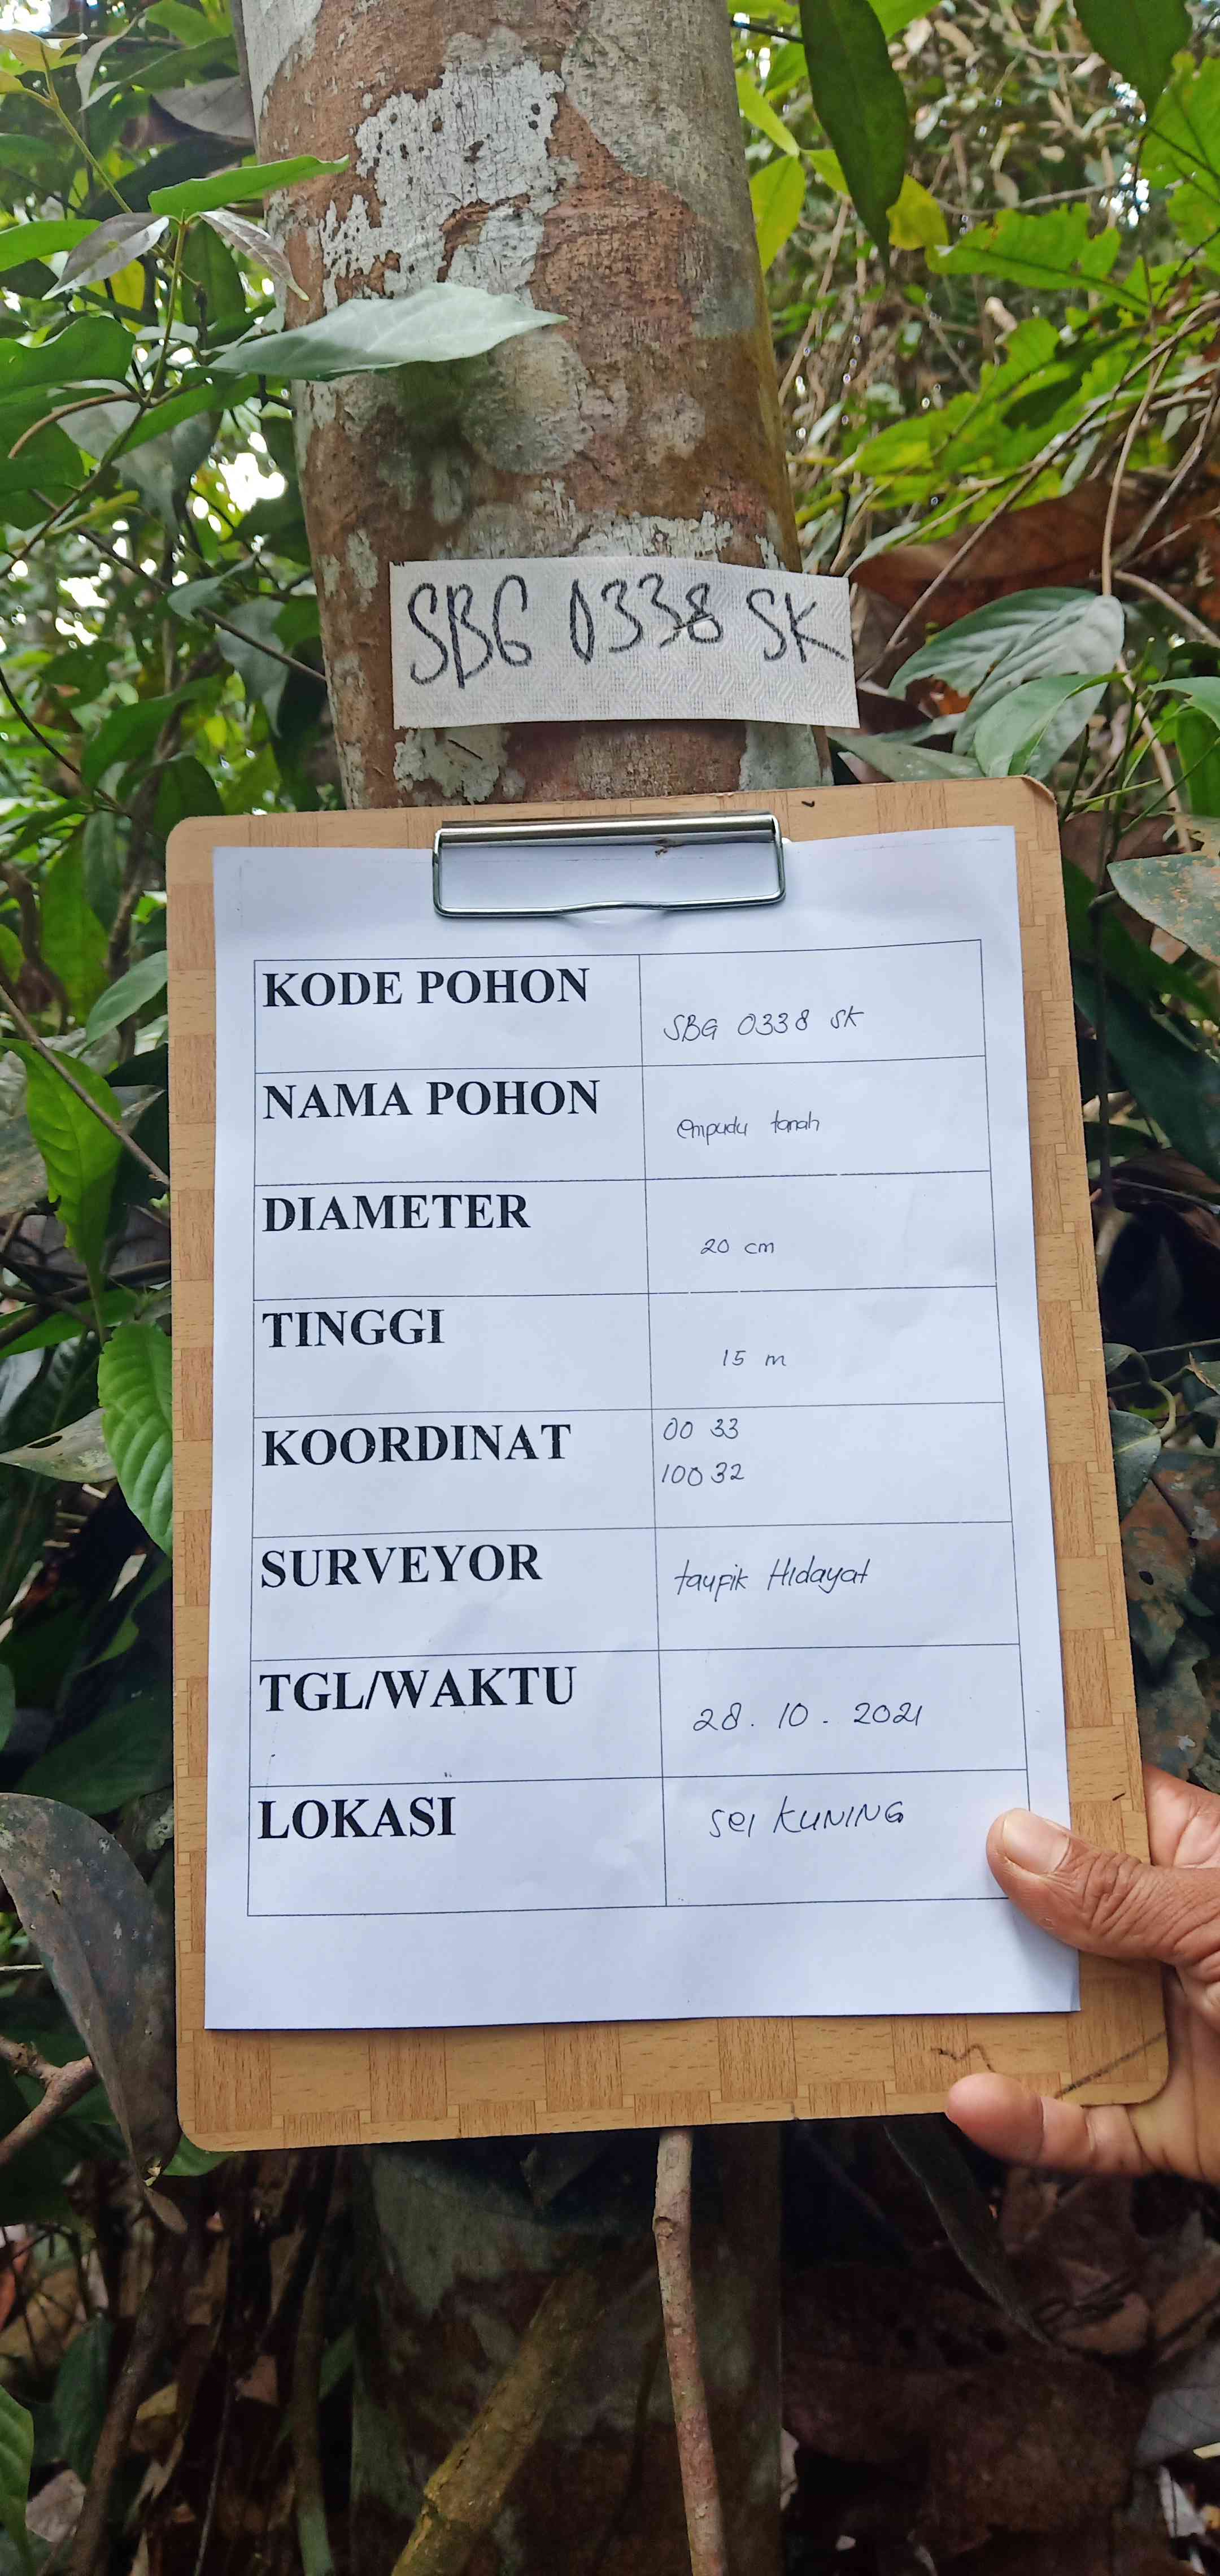 SBG 0338 SK
KODE POHON
SBG 0338 SK
NAMA POHON
empudu tanah
DIAMETER
20 cm
TINGGI
15 m
KOORDINAT
00 33
100 32
SURVEYOR
taufik Hidayat
TGL/WAKTU
28. 10. 2021
LOKASI
Sei KUNING